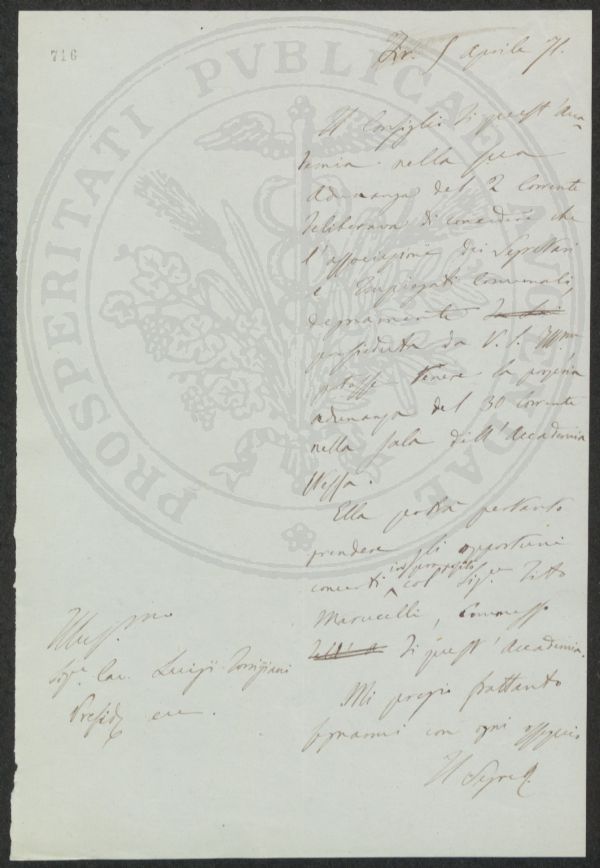 716
PROSPERITATI PVBLICAE AVGENDAE
Fir. 5 Aprile 71.
Il Consiglio di quest'Acca=
demia nella sua
adunanza del 2 corrente
deliberava di concedere che
l'associazione dei Segretari
e Impiegati Comunali,
degnamente
presieduta da V. S. Illma
potesse tenere la propria
adunanza del 30 corrente
nella sala dell'Accademia
stessa.
Ella potrà pertanto
prendere gli opportuni
concerti in proposito col Sigr Tito
Marucelli, Commesso
di quest'Accademia.
Mi pregio frattanto
segnarmi con ogni ossequio
Il Segret.
Illus.mo
Sigr Cav. Luigi Torrigiani
Presid